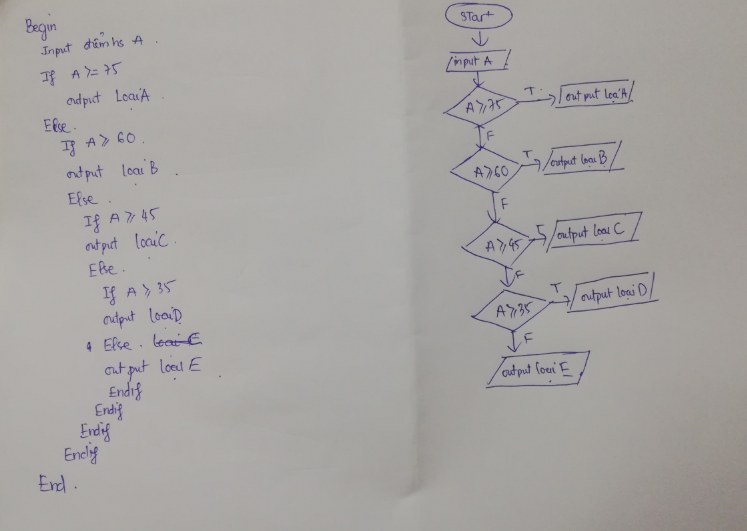 Begin
Input điểm hs A.
If A >= 75
output Loại A
Else.
If A ≥ 60.
output loại B.
Else.
If A ≥ 45
output loại C.
Else.
If A ≥ 35
output loại D
Else.
output loại E
Endif
Endif
Endif
Endif
End.
Start
input A
A ≥ 75
T.
output loại A
F
A ≥ 60
T
output loại B
F
A ≥ 45
T
output loại C
F
A ≥ 35
T
output loại D
F
output loại E